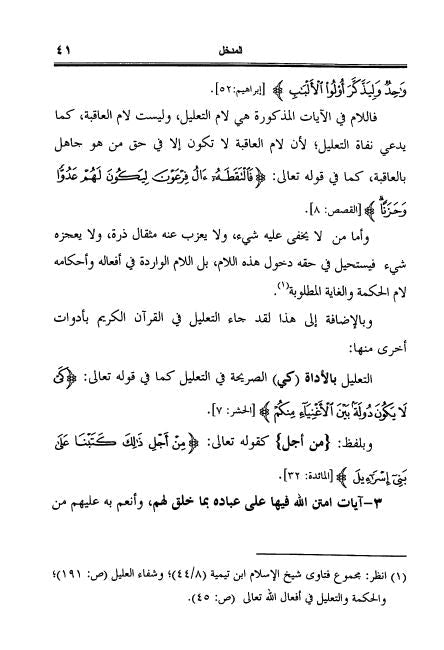 المدخل ٤١
وَٰحِدٌ وَلِيَذَّكَّرَ أُو۟لُوا۟ ٱلْأَلْبَٰبِ ﴾ [إبراهيم:٥٢].
فاللام في الآيات المذكورة هي لام التعليل، وليست لام العاقبة، كما
يدعي نفاة التعليل؛ لأن لام العاقبة لا تكون إلا في حق من هو جاهل
بالعاقبة، كما في قوله تعالى: ﴿ فَٱلْتَقَطَهُۥٓ ءَالُ فِرْعَوْنَ لِيَكُونَ لَهُمْ عَدُوًّا
وَحَزَنًاۗ ﴾ [القصص: ٨].
وأما من لا يخفى عليه شيء، ولا يعزب عنه مثقال ذرة، ولا يعجزه
شيء فيستحيل في حقه دخول هذه اللام، بل اللام الواردة في أفعاله وأحكامه
لام الحكمة والغاية المطلوبة(١).
وبالإضافة إلى هذا لقد جاء التعليل في القرآن الكريم بأدوات
أخرى منها:
التعليل بالأداة (كي) الصريحة في التعليل كما في قوله تعالى: ﴿كَىْ
لَا يَكُونَ دُولَةًۢ بَيْنَ ٱلْأَغْنِيَآءِ مِنكُمْ ﴾ [الحشر: ٧].
وبلفظ: {من أجل} كقوله تعالى: ﴿ مِنْ أَجْلِ ذَٰلِكَ كَتَبْنَا عَلَىٰ
بَنِىٓ إِسْرَٰٓءِيلَ ﴾ [المائدة: ٣٢].
٣-آيات امتن الله فيها على عباده بما خلق لهم، وأنعم به عليهم من
(١) انظر: مجموع فتاوى شيخ الإسلام ابن تيمية (٤٤/٨)؛ وشفاء العليل (ص: ١٩١)؛
والحكمة والتعليل في أفعال الله تعالى (ص: ٤٥).